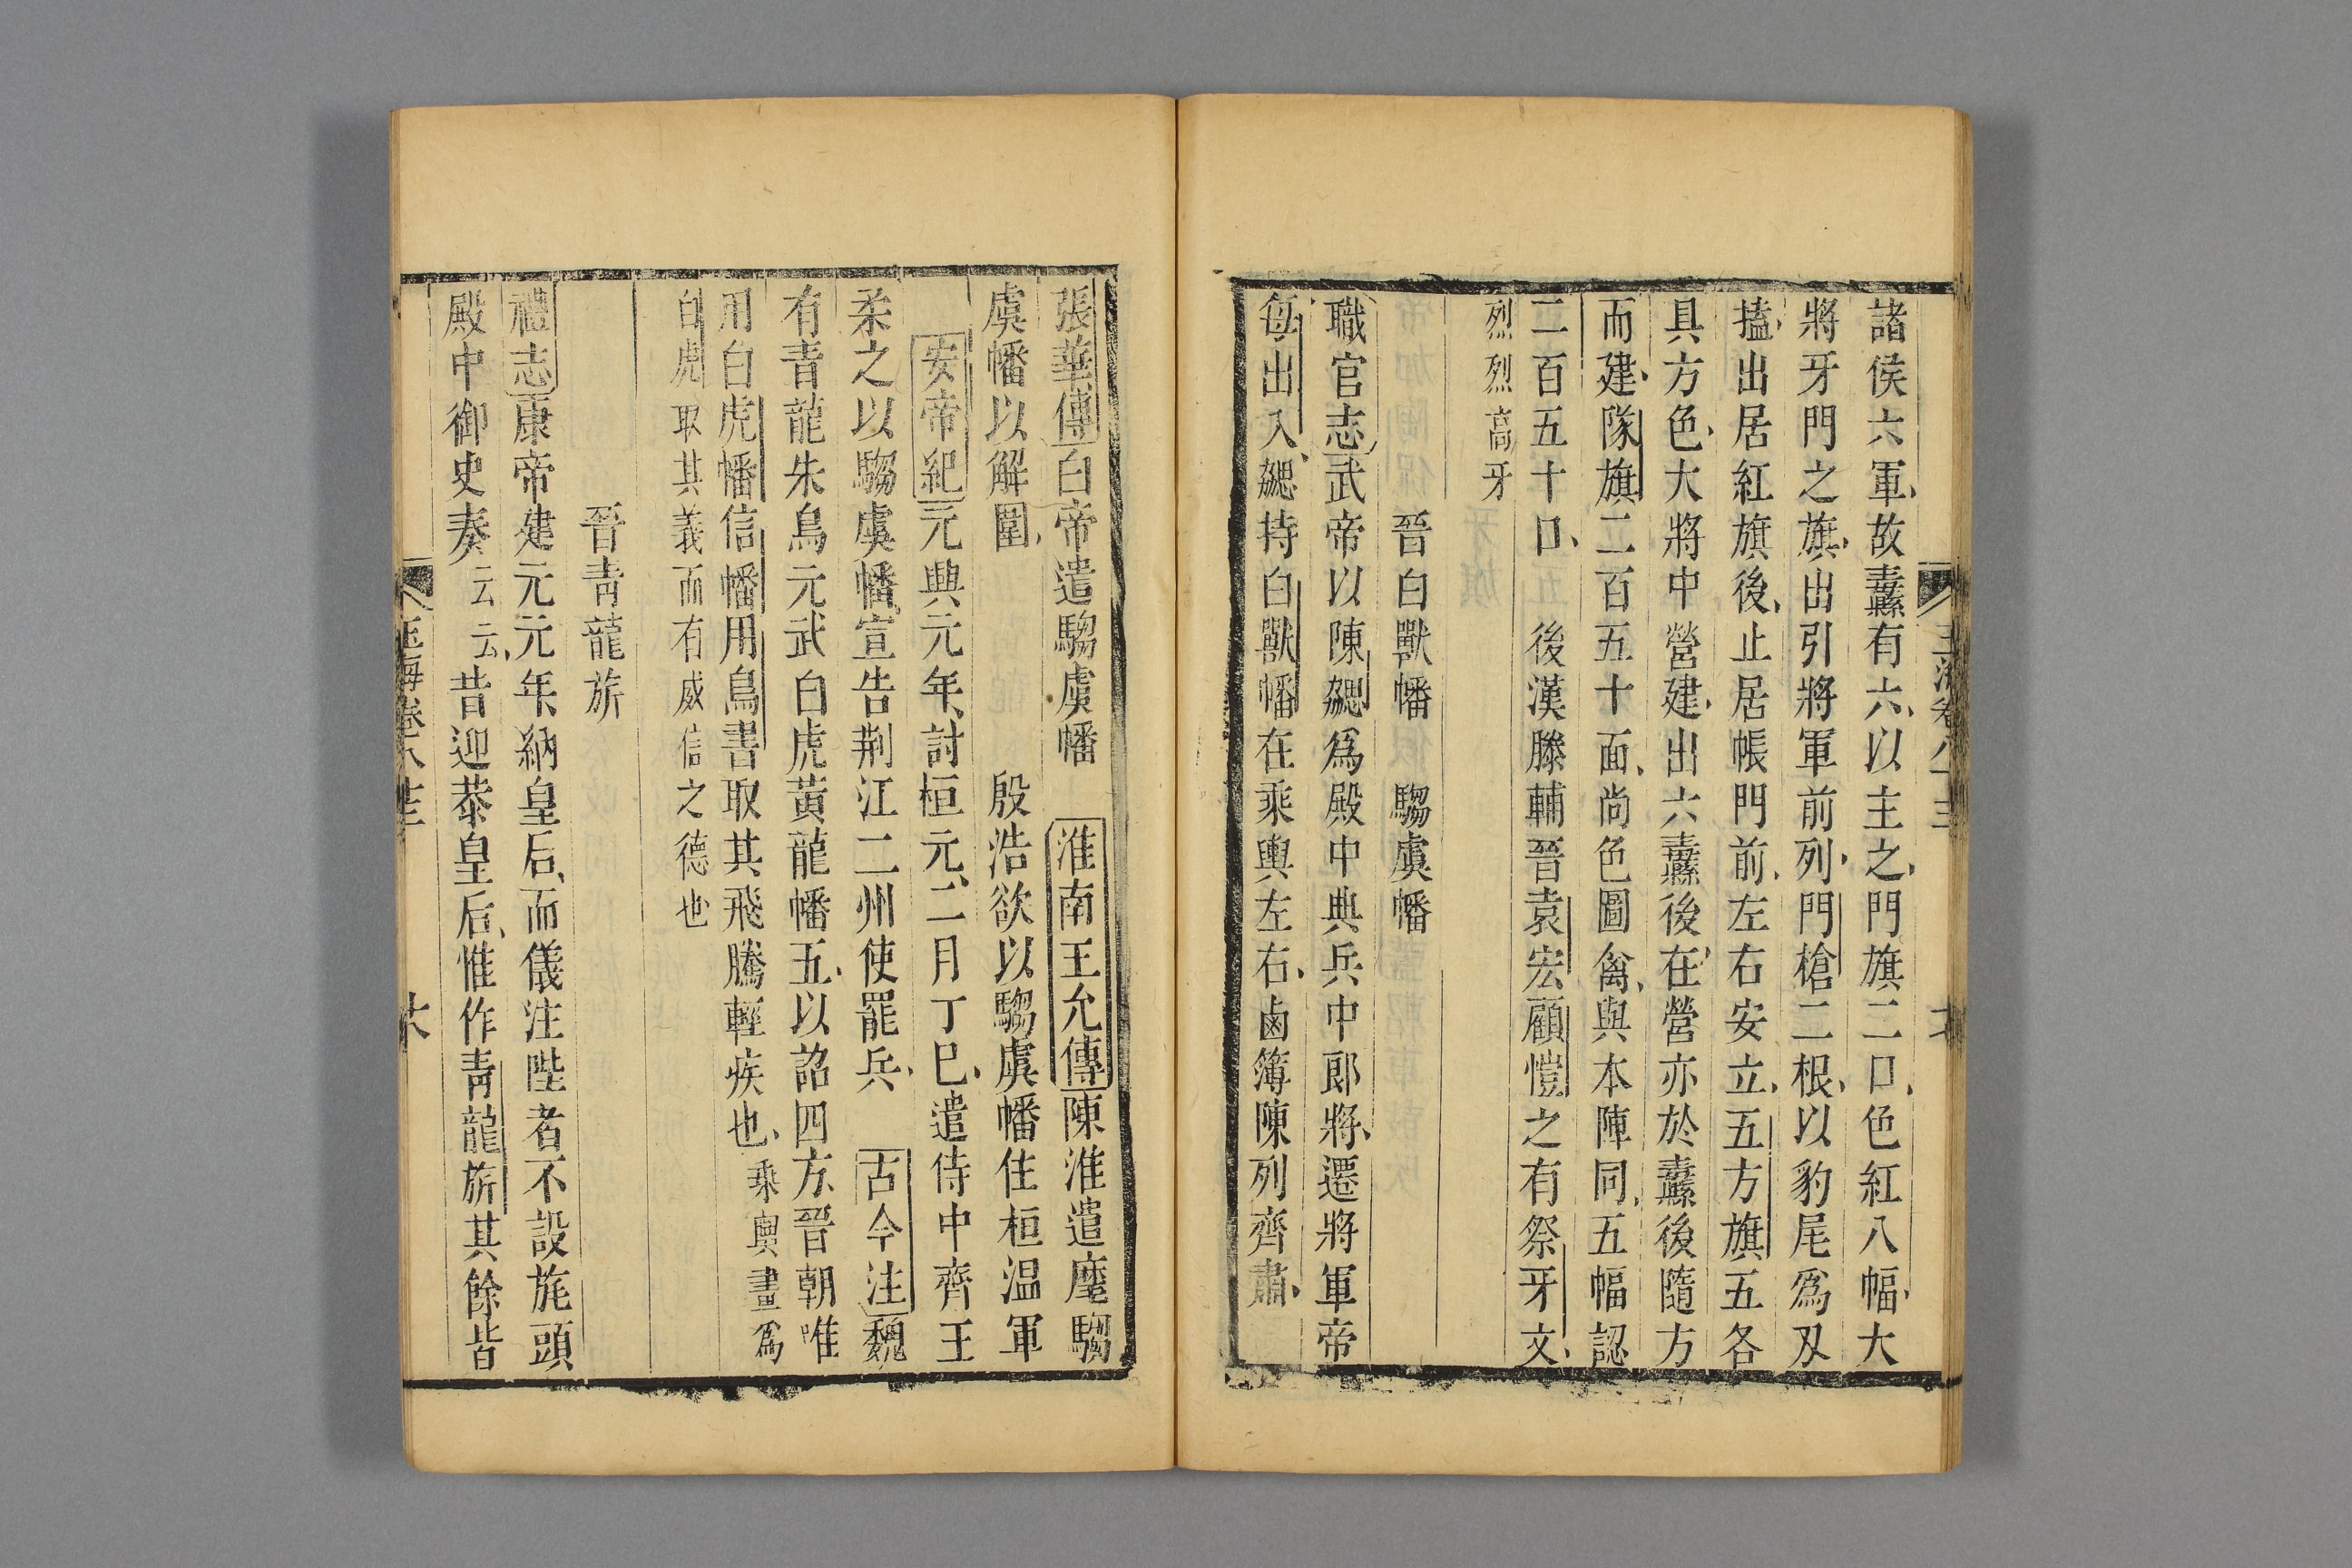 諸侯六軍故纛有六以主之門旗二口色紅八幅大
將牙門之旗出引將軍前列門槍二根以豹尾爲刃
搕出居紅旗後止居帳門前左右安立五方旗五各
具方色大將中營建出六纛後在營亦於纛後隨方
而建隊旗二百五十面尚色圖禽與本陣同五幅認
二百五十口 後漢滕輔晉袁宏顧愷之有祭牙文
烈烈高牙
晉白獸幡 騶虞幡
職官志武帝以陳勰爲殿中典兵中郎將遷將軍帝
每出入勰持白獸幡在乘輿左右鹵簿陳列齊肅
張華傳白帝遣騶虞幡 淮南王允傳陳淮遣麾騶
虞幡以解圍 殷浩欲以騶虞幡住桓温軍
安帝紀元興元年討桓元二月丁巳遣侍中齊王
柔之以騶虞幡宣告荆江二州使罷兵 古今注魏
有青龍朱鳥元武白虎黃龍幡五以詔四方晉朝唯
用白虎幡信幡用鳥書取其飛騰輕疾也乘輿畫爲
白虎取其義而有威信之德也
晉青龍旂
禮志康帝建元元年納皇后而儀注陛者不設旄頭
殿中御史奏云云昔迎恭皇后惟作青龍旂其餘皆